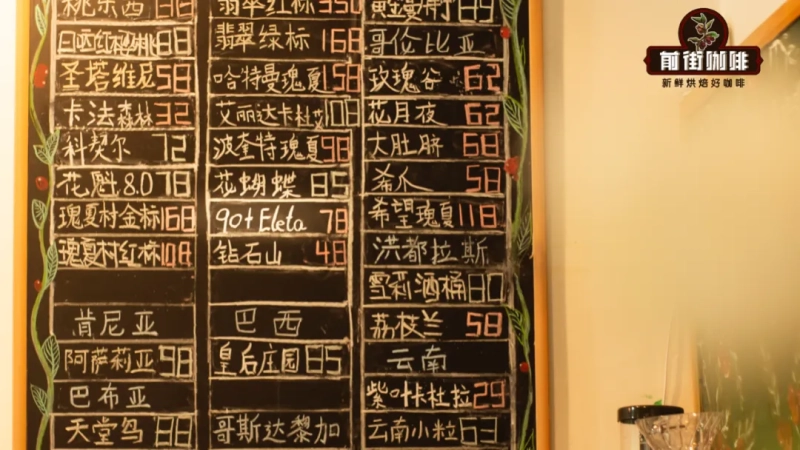 翡翠红标 350
红樱桃 88
圣塔维尼 58
卡法森林 32
科契尔 72
花魁 8.0 78
瑰夏村金标 168
瑰夏村红标 108
肯尼亚
阿萨莉亚 98
巴布亚
天堂鸟 88
翡翠绿标 168
哈特曼瑰夏 58
艾丽达卡杜艾 108
波奎特瑰夏 98
花蝴蝶 85
90+ Eleta 78
钻石山 48
巴西
皇后庄园 85
哥斯达黎加
哥伦比亚
玫瑰谷 62
花月夜 62
大肚脐 68
希爪 58
希望瑰夏 118
洪都拉斯
雪莉酒桶 80
荔枝兰 58
云南
紫叶卡杜拉 29
云南小粒 63
前街咖啡
新鲜烘焙好咖啡